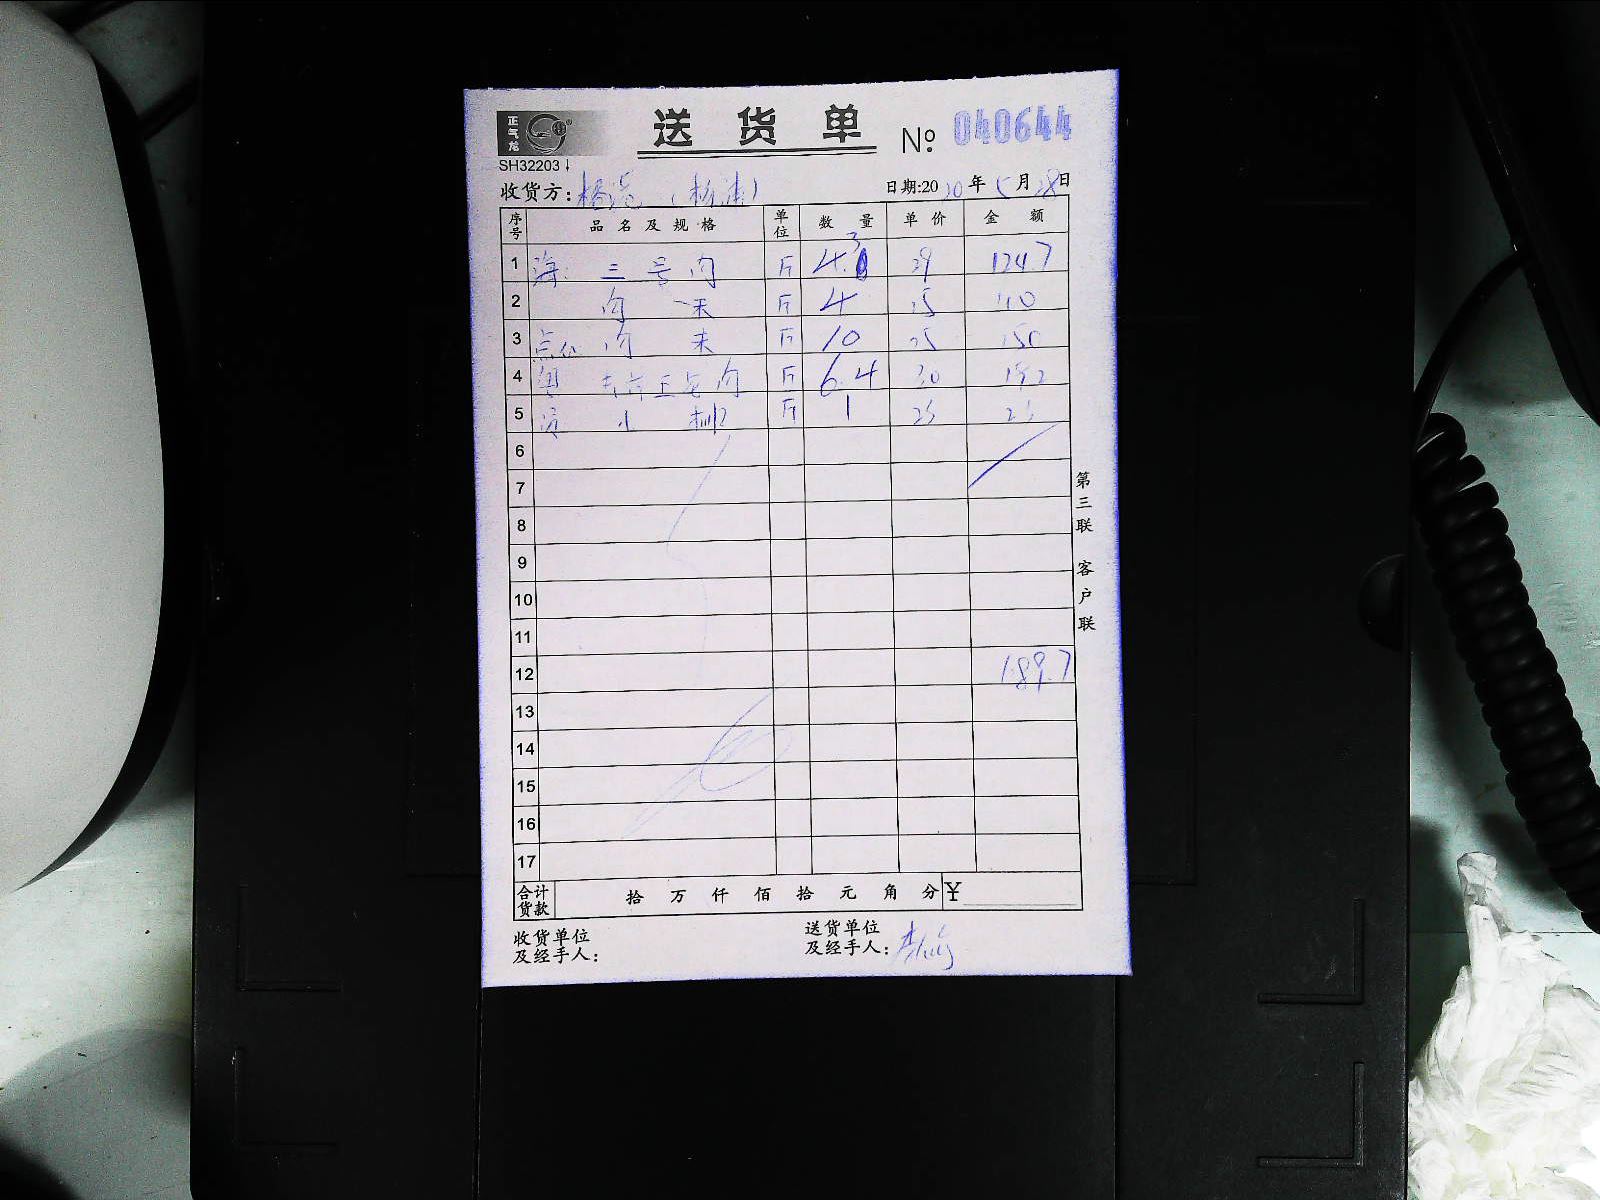 正气龙
送货单 № 040644
SH32203
收货方: 日期:2020年5月28日
序号 品名及规格 单位 数量 单价 金额
1 海 三号肉 斤 4.3 29 124.7
2 肉末 斤 4
3 点心 肉末 斤 10 150
4 肉 斤 6.4 30 192
5 小 斤 1 25 25
6
7
8
9
10
11
12 189.7
13
14
15
16
17
合计货款 拾万仟佰拾元角分 ¥
收货单位及经手人:
送货单位及经手人:
第三联 客户联